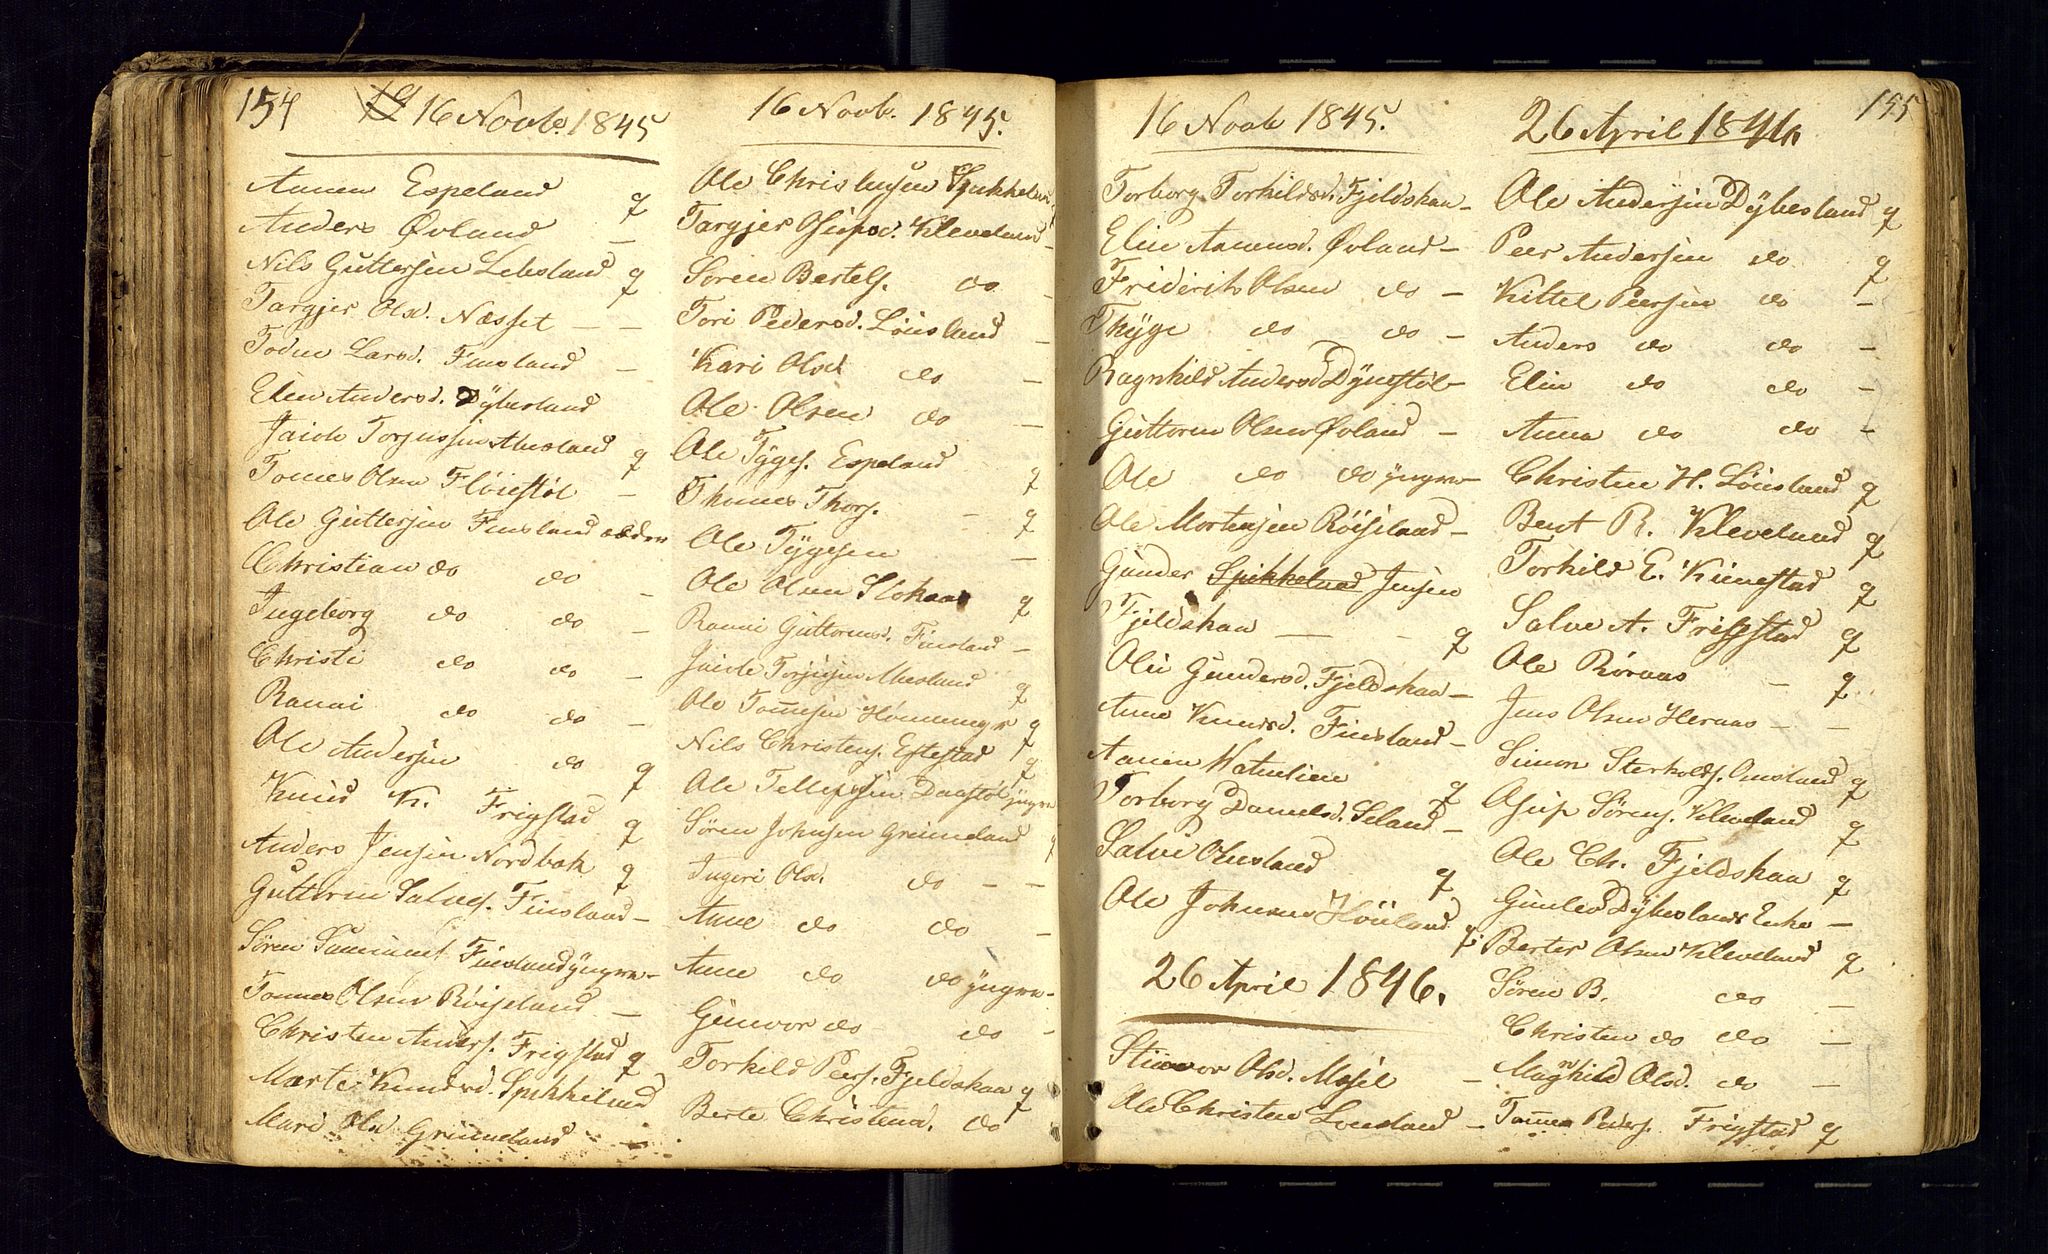 154
16 Novb. 1845
Aanen Espeland q
Anders Øvland —
Nils Guttersen Lebsland q
Targjer Olsd. Næsset — —
Todne Larsd. Finsland —
Elen Andersd. Dybesland
Jacob Torjussen Aluesland q
Tomes Olsen Fløiestøl —
Ole Guttersen Finsland alderen
Christian do do —
Ingeborg do do —
Christi do do —
Rannei do do —
Ole Andersen do q
Knud K. Frigstad q
Anders Jensen Nordbøk q
Guttorm Salves. Finsland —
Søren Finsland yngre —
Tonnes Olsen Røiseland —
Christen Anders. Frigstad q
Marte Knudsd. Spikkeland
Mari Olsd Gruneland —
16 Novb. 1845.
Ole Christensen Spikkeland
Targjer Osufsd. Kleveland —
Søren Bertels. do —
Tori Pedersd. Løusland —
Kari Olsd do —
Ole Olsen do —
Ole Tyges. Espeland q
Thomes Thors. — q
Ole Tygesen —
Ole Olsen Stokaas q
Rannei Guttormsd. Finsland —
Jacob Torjusen Aluesland q
Ole Tommesen q
Nils Christens. Eftestad q
Ole Tellefsen Daastøl yngre
Søren Johnsen Gruneland q
Ingeri Olsd. do — —
Anne do do —
Anne do do yngre —
Gunvor do do —
Torkild Peers. Fjeldskaa q
Berte Christensd. do
16 Novb 1845.
Torborg Torkildsd. Fjeldskaa —
Elin Aanensd. Øvland —
Friderik Olsen do —
Thyge do do —
Ragnhild Andersd Dynestøl —
Guttorm Olsen Øvland —
Ole do do yngre —
Ole Mortensen Røiseland —
Gunder Spikkeland Jensen
Fjeldskaa — — q
Oli Gundersd. Fjeldskaa —
Anne Knudsd. Finsland —
Aanen Hatuelien q
Torborg Danielsd. Seland —
Salve Omsland q
Ole Johnsen Høiland q
26 April 1846.
Stinvor Olsd. Mosel —
Ole Christen Lousland —
155
26 April 1846
Ole Andersen Dybesland q
Peer Andersen do q
Kittel Peersen do —
Anders do do —
Elin do do —
Anna do do —
Christen H. Løusland q
Bent R. Kleveland q
Torkild E. Kunestad q
Salve A. Frigstad q
Ole Røraas — q
Jens Olsen Heraas — —
Simon Sterkolds. Omsland q
Osuf Sørens. Kleveland q
Ole Ch. Fjeldskaa q
Gunled Dybeslands Enke —
Berter Olsen Kleveland q
Søren B. do —
Christen do do —
Magnhild Olsd. do —
Tonnes Peders. Frigstad q